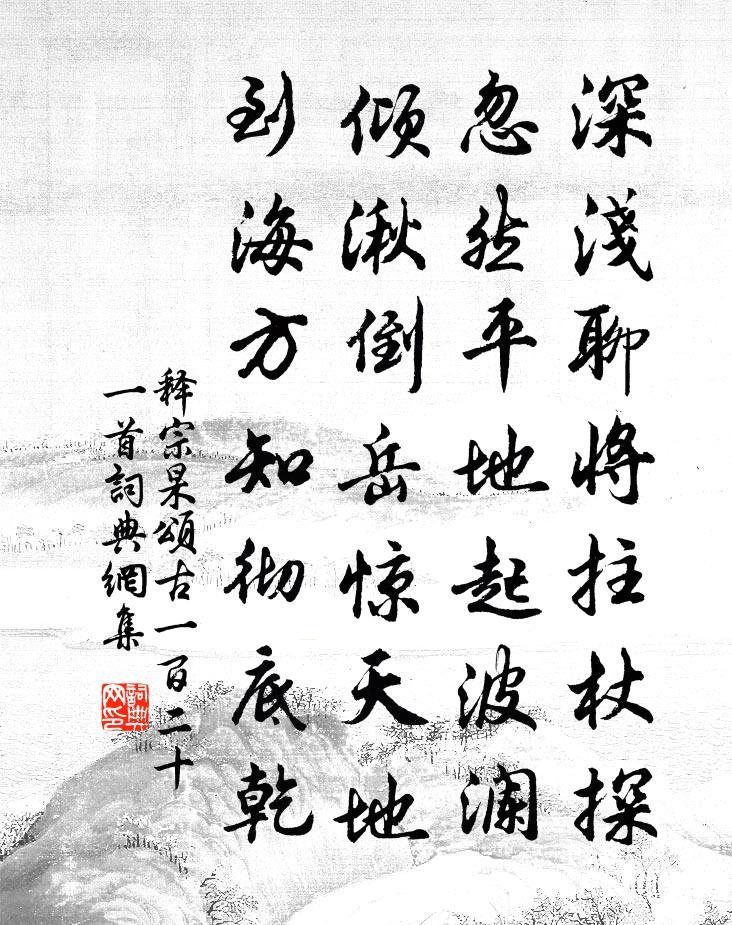 深淺聊將拄杖探
忽然平地起波澜
倾湫倒岳惊天地
到海方知彻底乾
释宗杲頌古一百二十
一首詞典網集
詞典网印